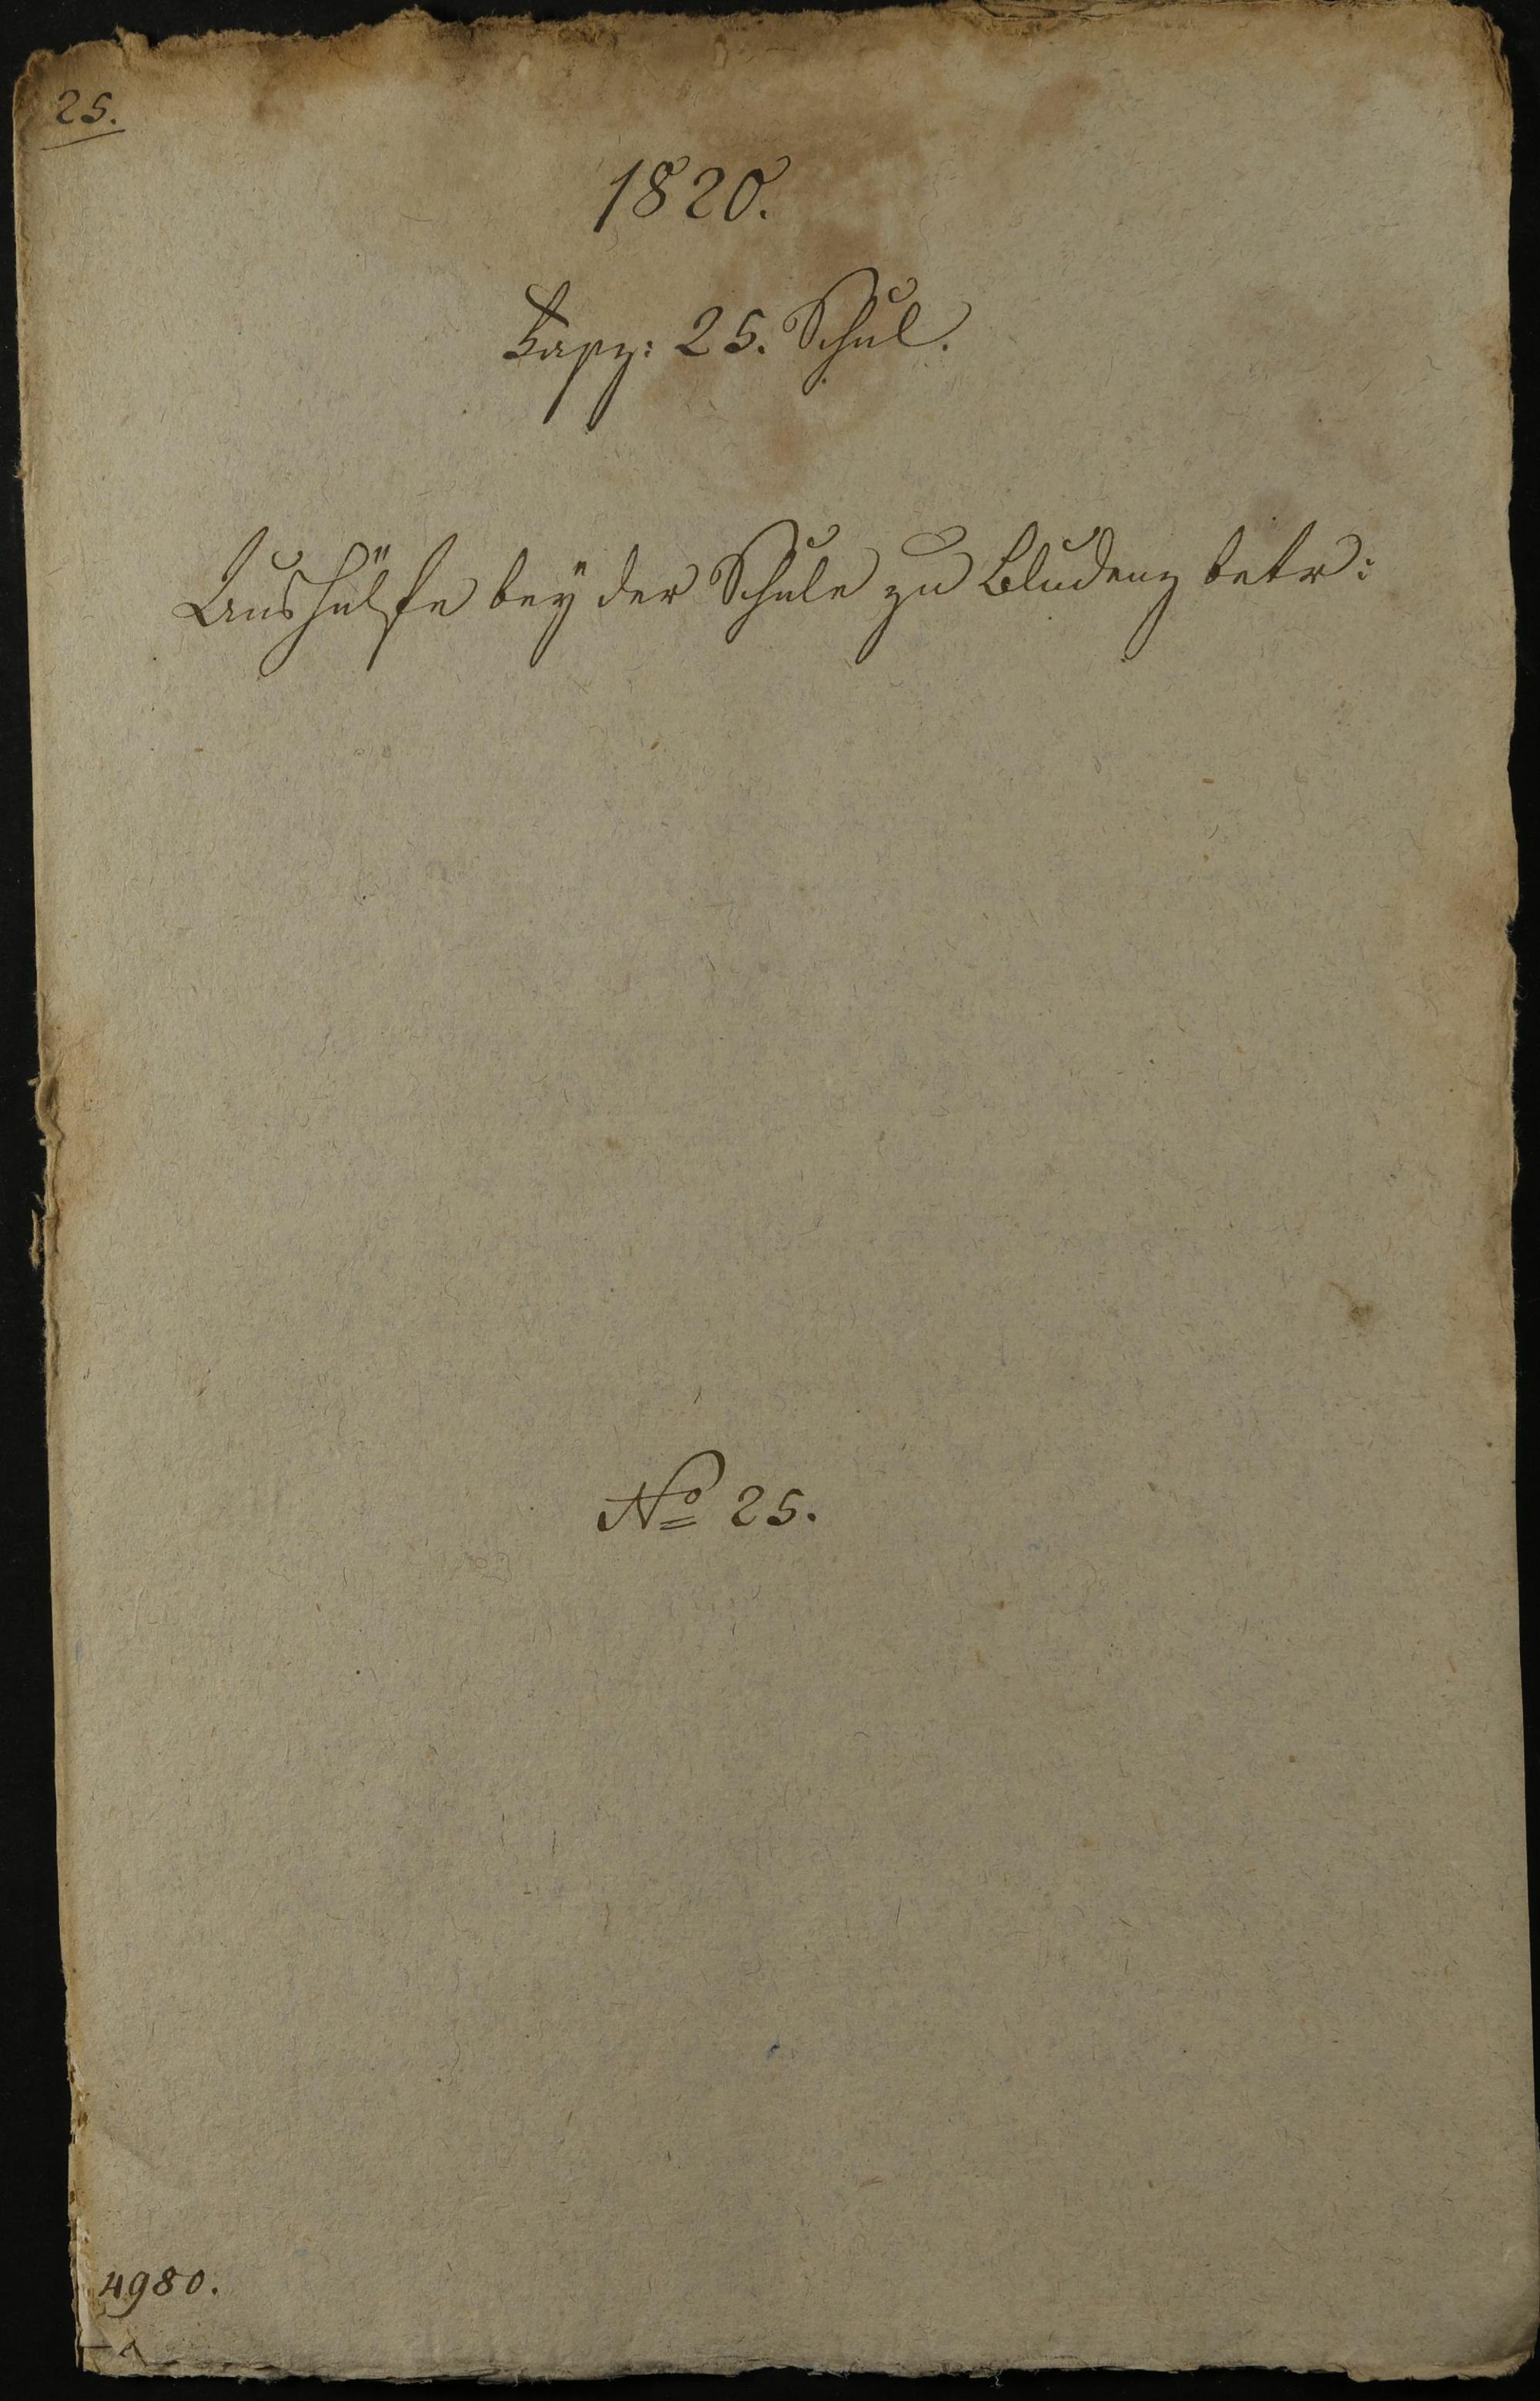 25.
1820.
Fasz: 25. Schul.
Aushülfe bey der Schule zu Bludenz betr:
No 25.
4980.